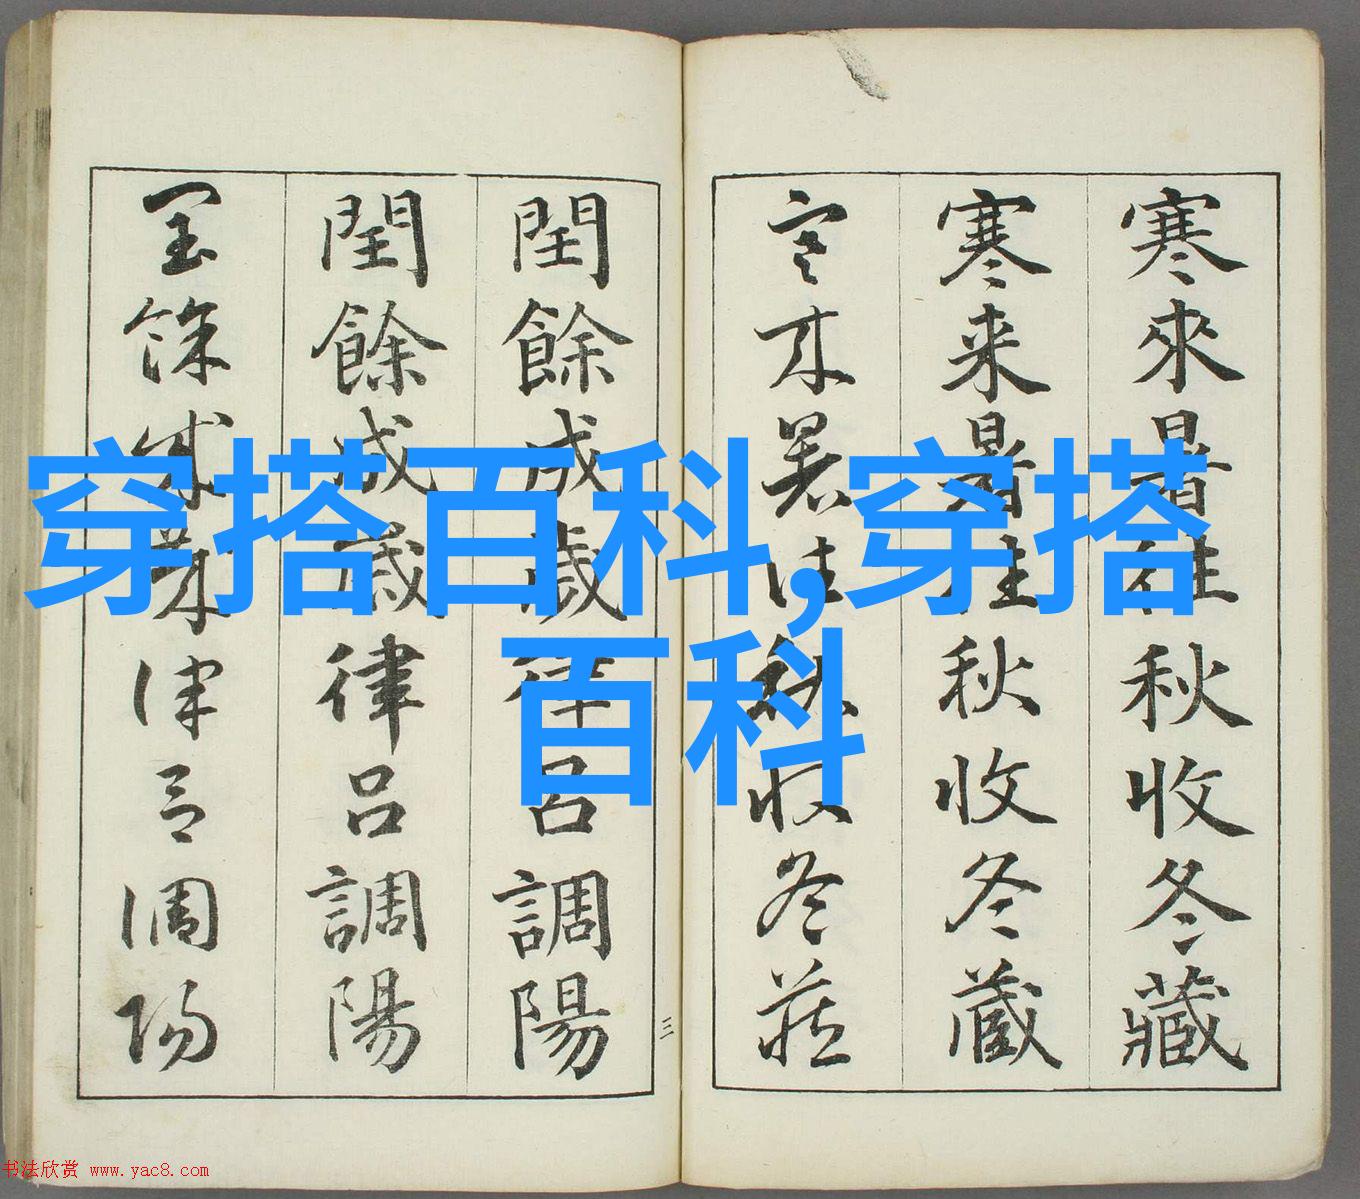 寒來暑往秋收冬藏
寒来暑往秋收冬蔵
寒来暑往秋收冬藏
三
閏餘成歲律吕調陽
閏餘成歳律吕調陽
閏餘成歲律吕調陽
穿搭百科,穿搭
百科
书法欣赏 www.yac8.com